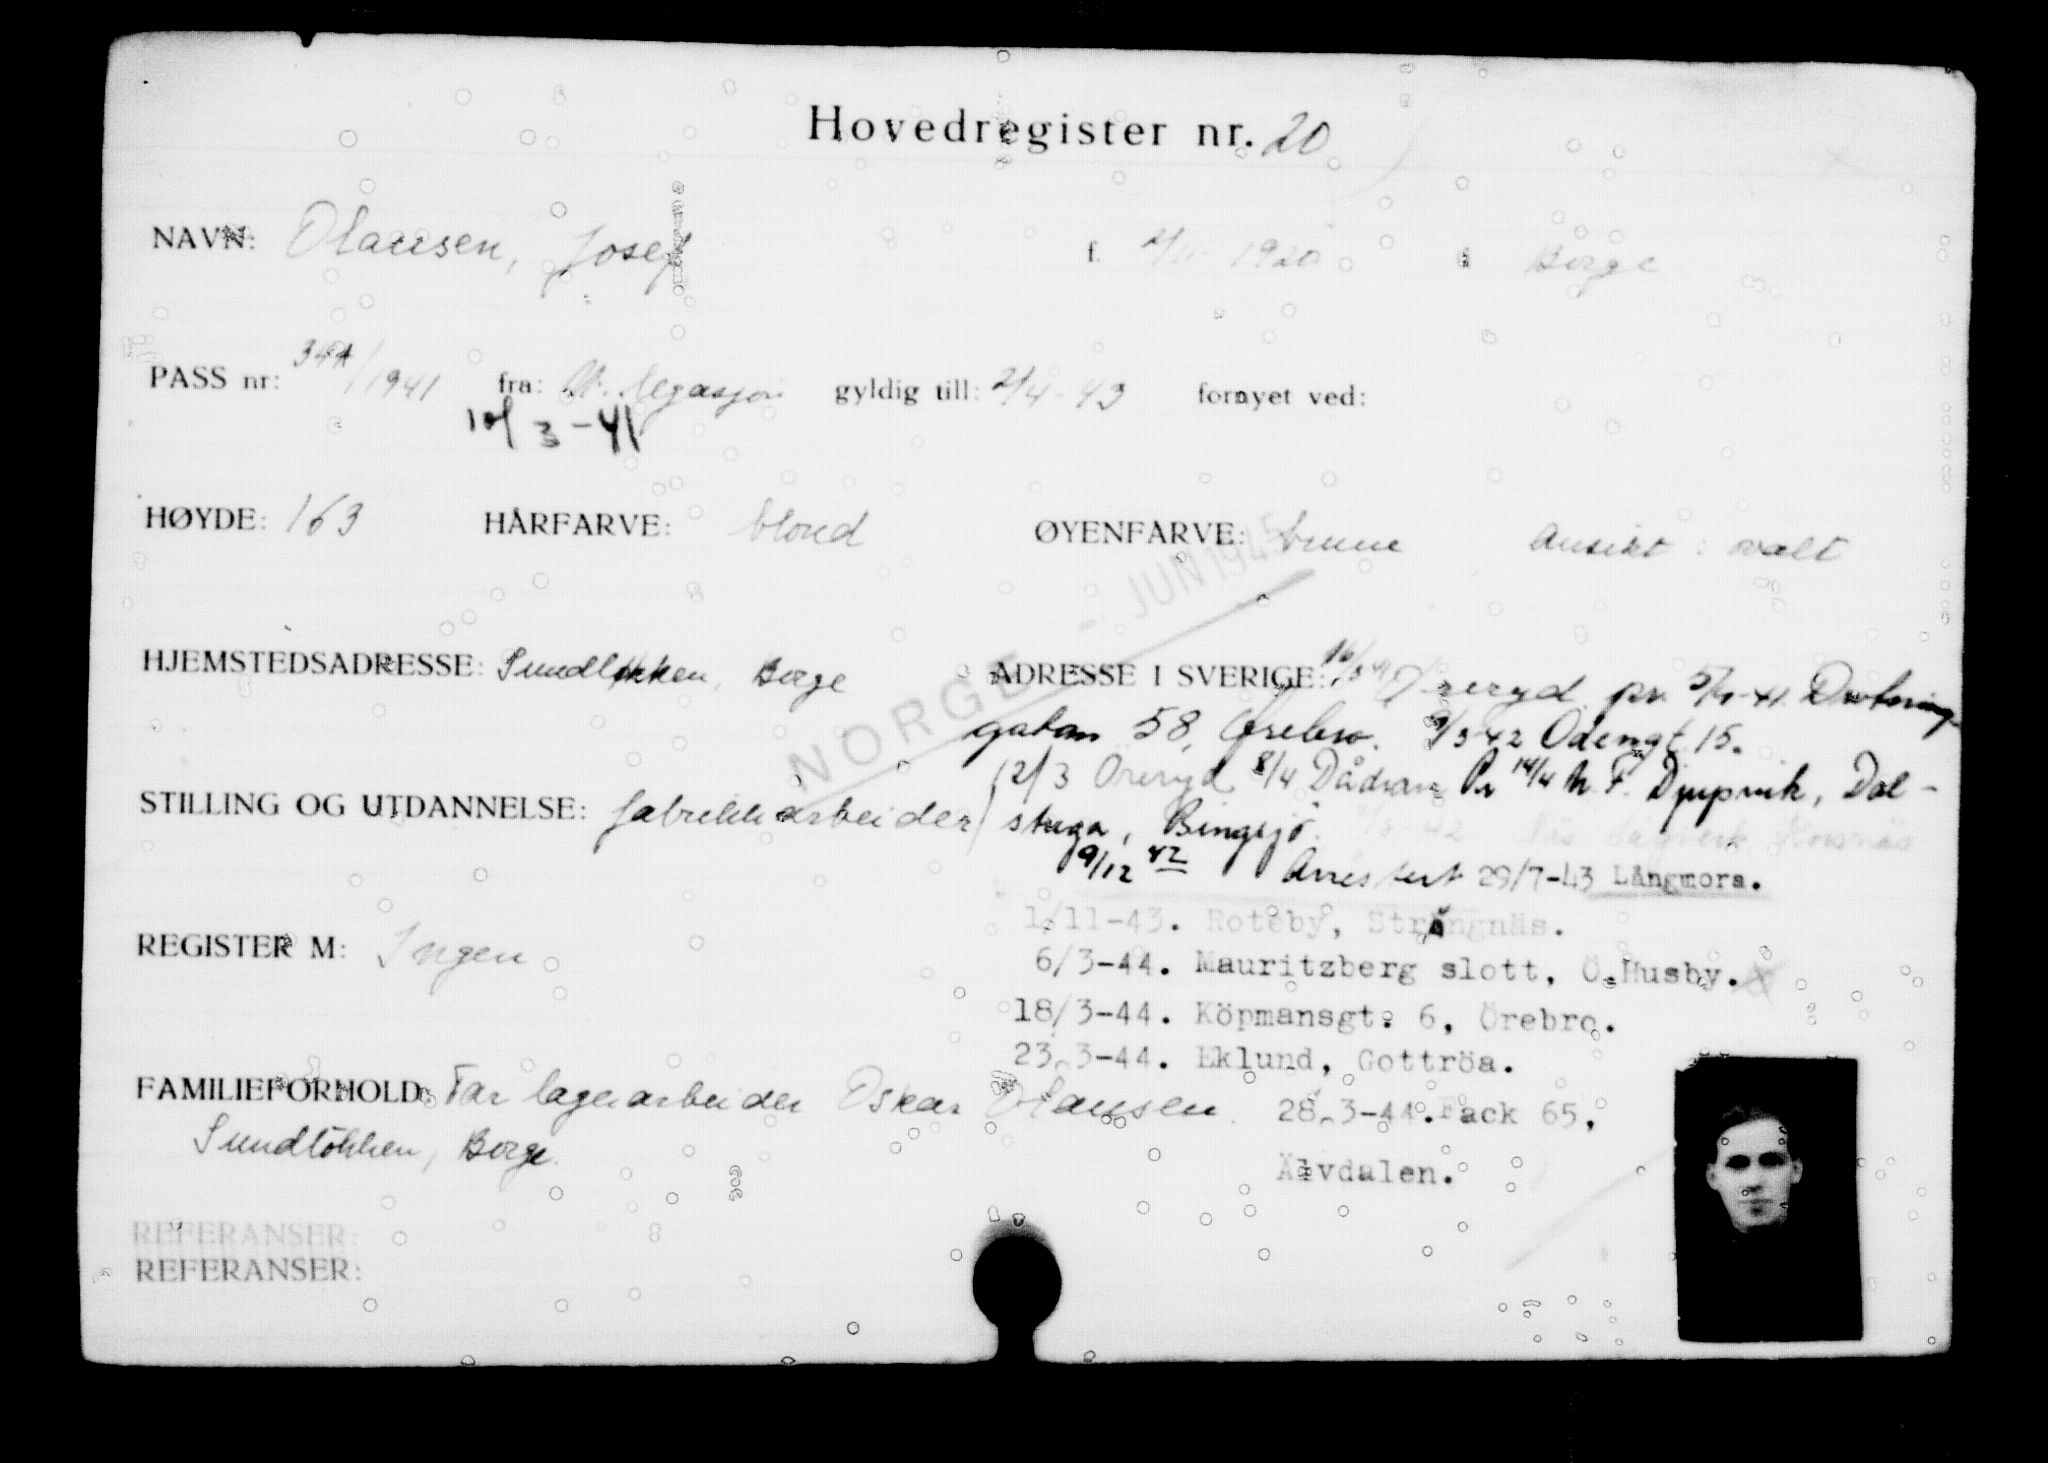 Hovedregister nr. 20
NAVN: Olaussen, Josef f. 1920 i Borge
PASS nr: 34A/1941 fra: legasjon gyldig till: 2/4-43 fornyet ved:
10/3-41
HØYDE: 163 HÅRFARVE: blond ØYENFARVE: brune Ansikt: ovalt
JUN 1945
NORGE
HJEMSTEDSADRESSE: Sundløkken, Borge ADRESSE I SVERIGE: Öreryd pr. Drotning
gatan 58, Ørebro. Odengt. 15.
STILLING OG UTDANNELSE: fabrikkarbeider
12/3 Öreryd 8/4 Dådran Pr 14/4 M. F. Djupvik, Dal-
stuga, Bingsjö.
9/12 42 Arrestert 29/7-43 Långmora.
1/11-43. Roteby, Strängnäs.
REGISTER M: Ingen
6/3-44. Mauritzberg slott, Ö.Husby.
18/3-44. Köpmansgt. 6, Örebro.
23.3-44. Eklund, Gottröa.
FAMILIEFORHOLD: Far lagerarbeider Oskar Olausen.
28.3-44. Fack 65,
Sundløkken, Borge.
Älvdalen.
REFERANSER:
REFERANSER: